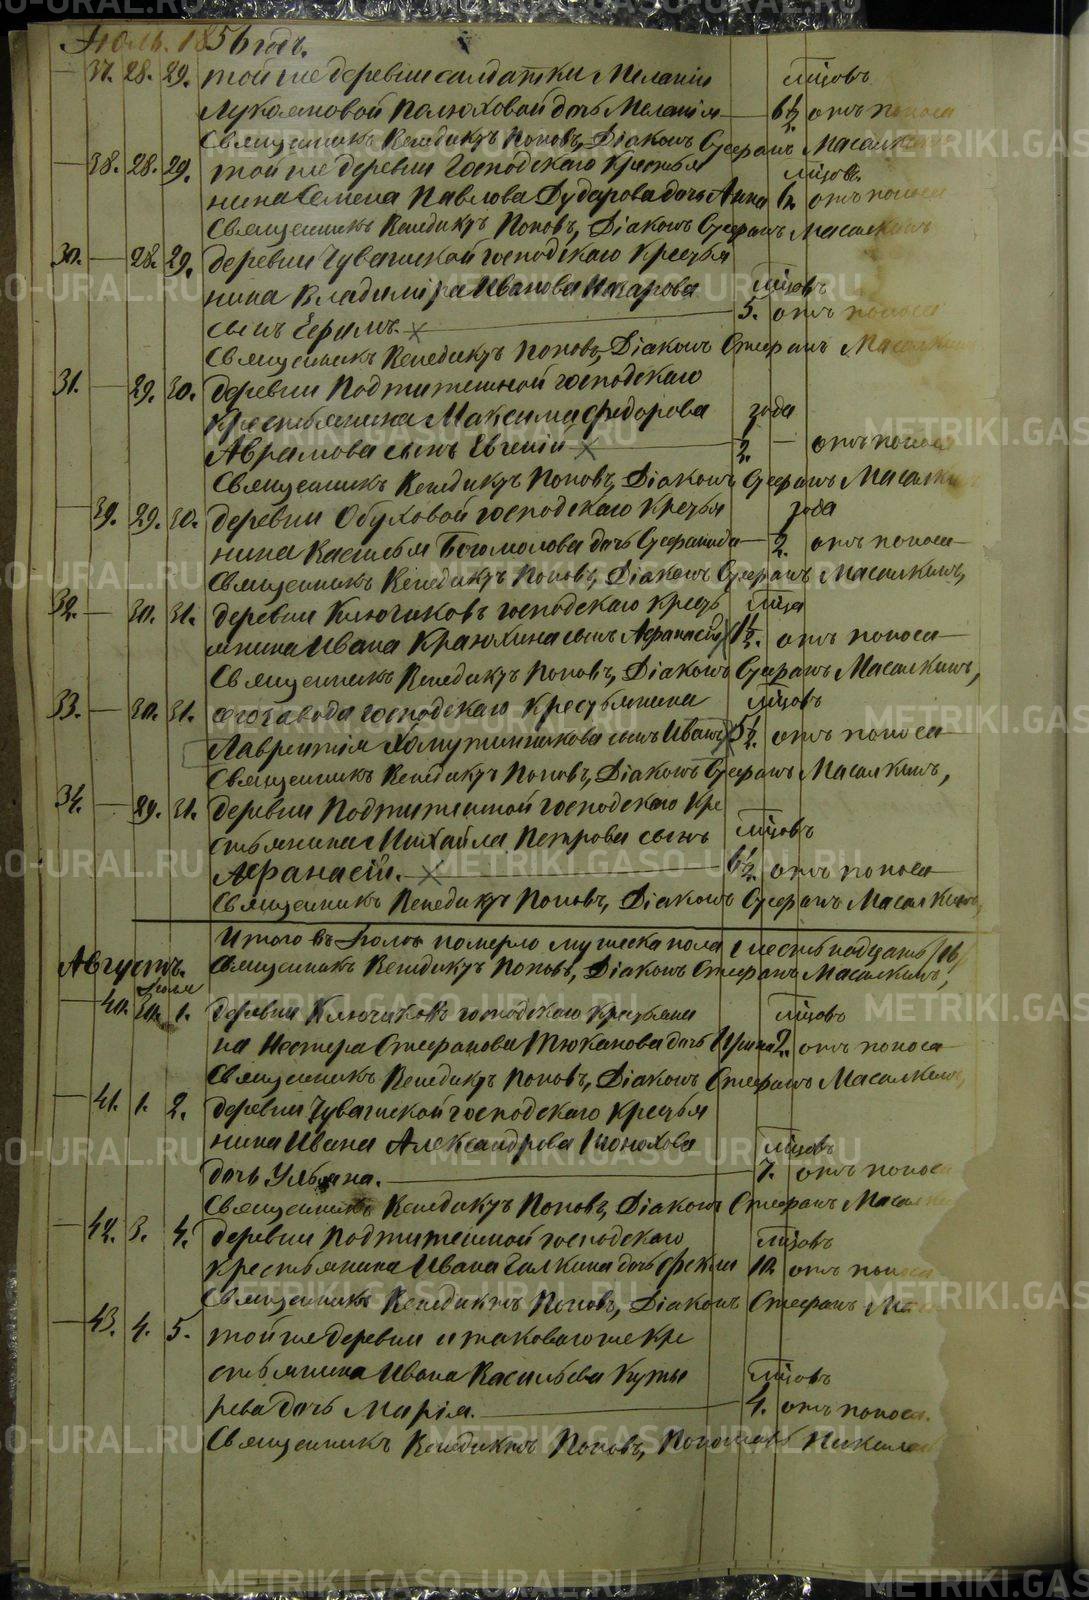 Июль. 1856 годъ.
37. 28. 29. той же деревни солдатки Меланіи мѣсяцовъ
Лукояновой Полюховой дочь Меланія 6 1/2 отъ поноса
Священникъ Венедиктъ Поповъ, Діаконъ Стефанъ Масалкинъ
38. 28. 29. той же деревни господскаго крестья мѣсяцовъ
нина Семена Павлова Дударова дочь Анна 6. отъ поноса
Священникъ Венедиктъ Поповъ, Діаконъ Стефанъ Масалкинъ
30. 28. 29. деревни Чувашской господскаго крестья
нина Владиміра Иванова Макарова мѣсяцовъ
сынъ Ефимъ. 5. отъ поноса
Священникъ Венедиктъ Поповъ, Діаконъ Стефанъ Масалкинъ
31. 29. 30. деревни Подтитешной господскаго
крестьянина Максима Федорова года
Аврамова сынъ Евгеній 2. отъ поноса
Священникъ Венедиктъ Поповъ, Діаконъ Стефанъ Масалкинъ
39. 29. 30. деревни Обуховой господскаго крестья года
нина Василья Богомолова дочь Стефанида 2. отъ поноса
Священникъ Венедиктъ Поповъ, Діаконъ Стефанъ Масалкинъ,
32. 30. 31. деревни Ключиковъ господскаго кресть мѣсяца
янина Ивана Краюхина сынъ Афанасій 1 1/2. отъ поноса
Священникъ Венедиктъ Поповъ, Діаконъ Стефанъ Масалкинъ,
33. 30. 31. сего завода господскаго крестьянина мѣсяцовъ
Лаврентія Хомутинникова сынъ Иванъ 5 1/2. отъ поноса
Священникъ Венедиктъ Поповъ, Діаконъ Стефанъ Масалкинъ,
34. 29. 31. деревни Подтитешной господскаго кре
стьянина Михайла Петрова сынъ мѣсяцовъ
Афанасій. 6 1/2. отъ поноса
Священникъ Венедиктъ Поповъ, Діаконъ Стефанъ Масалкинъ,
Итого въ Іюлѣ померло мужеска пола шестьнадцать /16/
Августъ. Священникъ Венедиктъ Поповъ, Діаконъ Стефанъ Масалкинъ,
Іюля
40. 30. 1. деревни Ключиковъ господскаго крестьяни мѣсяцовъ
на Нестера Стефанова Тюканова дочь Ирина 2. отъ поноса
Священникъ Венедиктъ Поповъ, Діаконъ Стефанъ Масалкинъ,
41. 1. 2. деревни Чувашской господскаго крестья
нина Ивана Александрова мѣсяцовъ
дочь Ульяна. 7. отъ поноса
Священникъ Венедиктъ Поповъ, Діаконъ Стефанъ Масалкинъ
42. 3. 4. деревни Подтитешной господскаго мѣсяцовъ
крестьянина Ивана Галкина дочь Фекла 10. отъ поноса
Священникъ Венедиктъ Поповъ, Діаконъ Стефанъ Мас
43. 4. 5. той же деревни и таковаго же кре
стьянина Ивана Васильева Куты мѣсяцовъ
рева дочь Марія. 4. отъ поноса.
Священникъ Венедиктъ Поповъ, Пономарь Николай